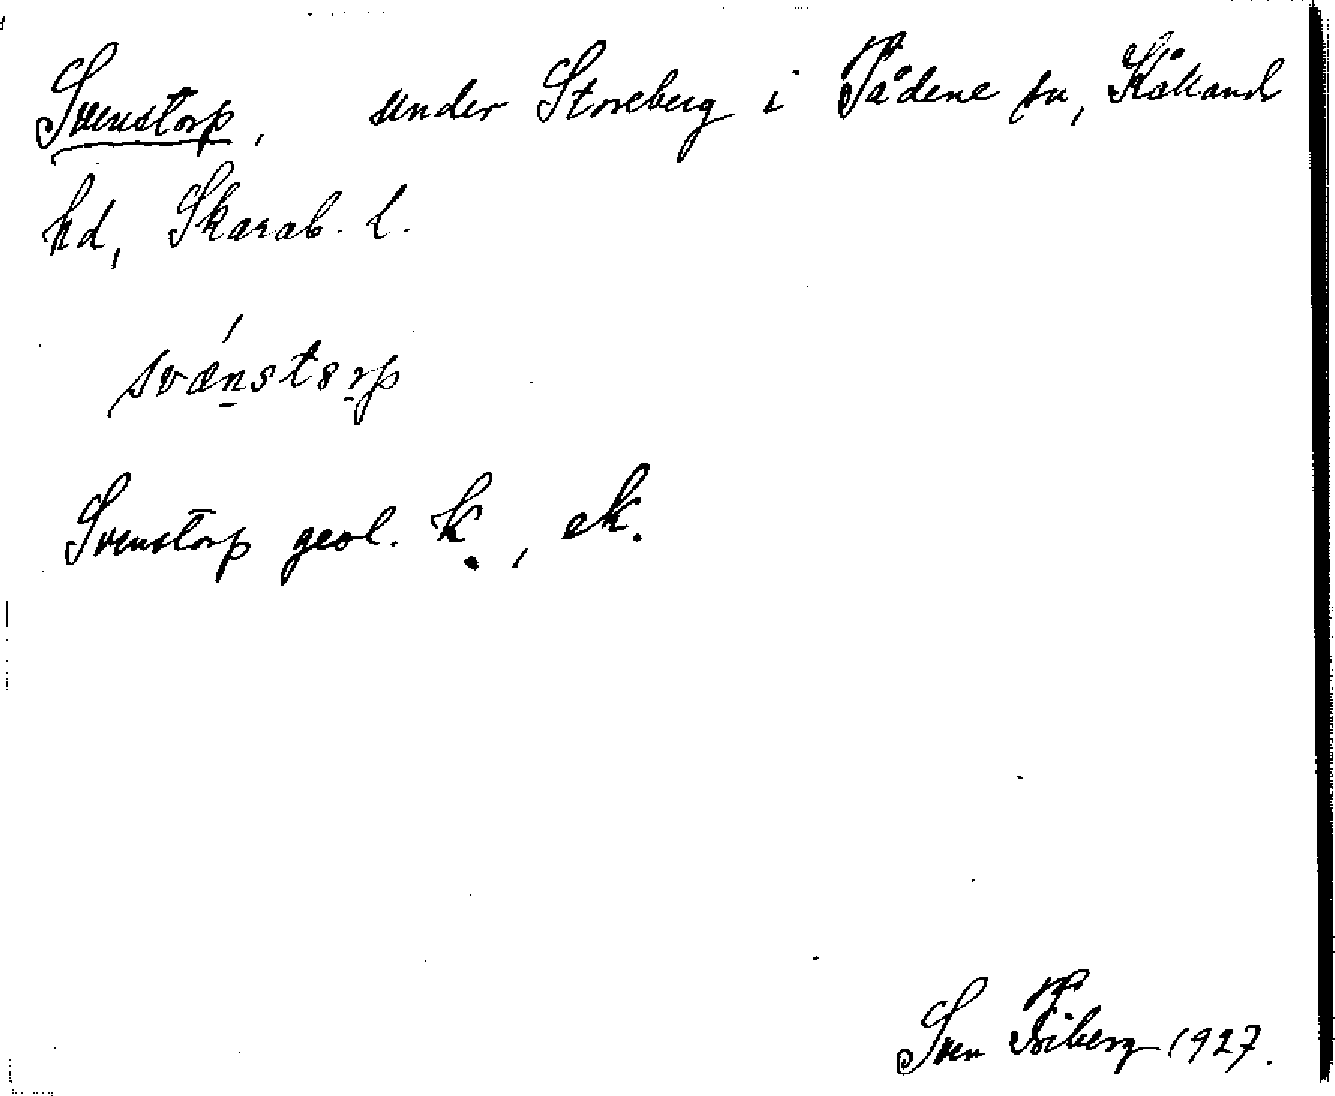 Svenstorp, under Storeberg i Tådene sn, Kålland
hd, Skarab. l.
svǽn̠stȣr̠p
Svenstorp geol. k., ek.
Sven Friberg 1927.